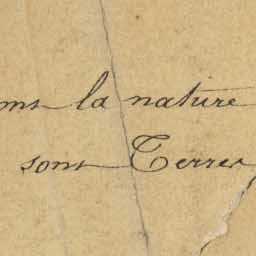 la nature
sont Terres